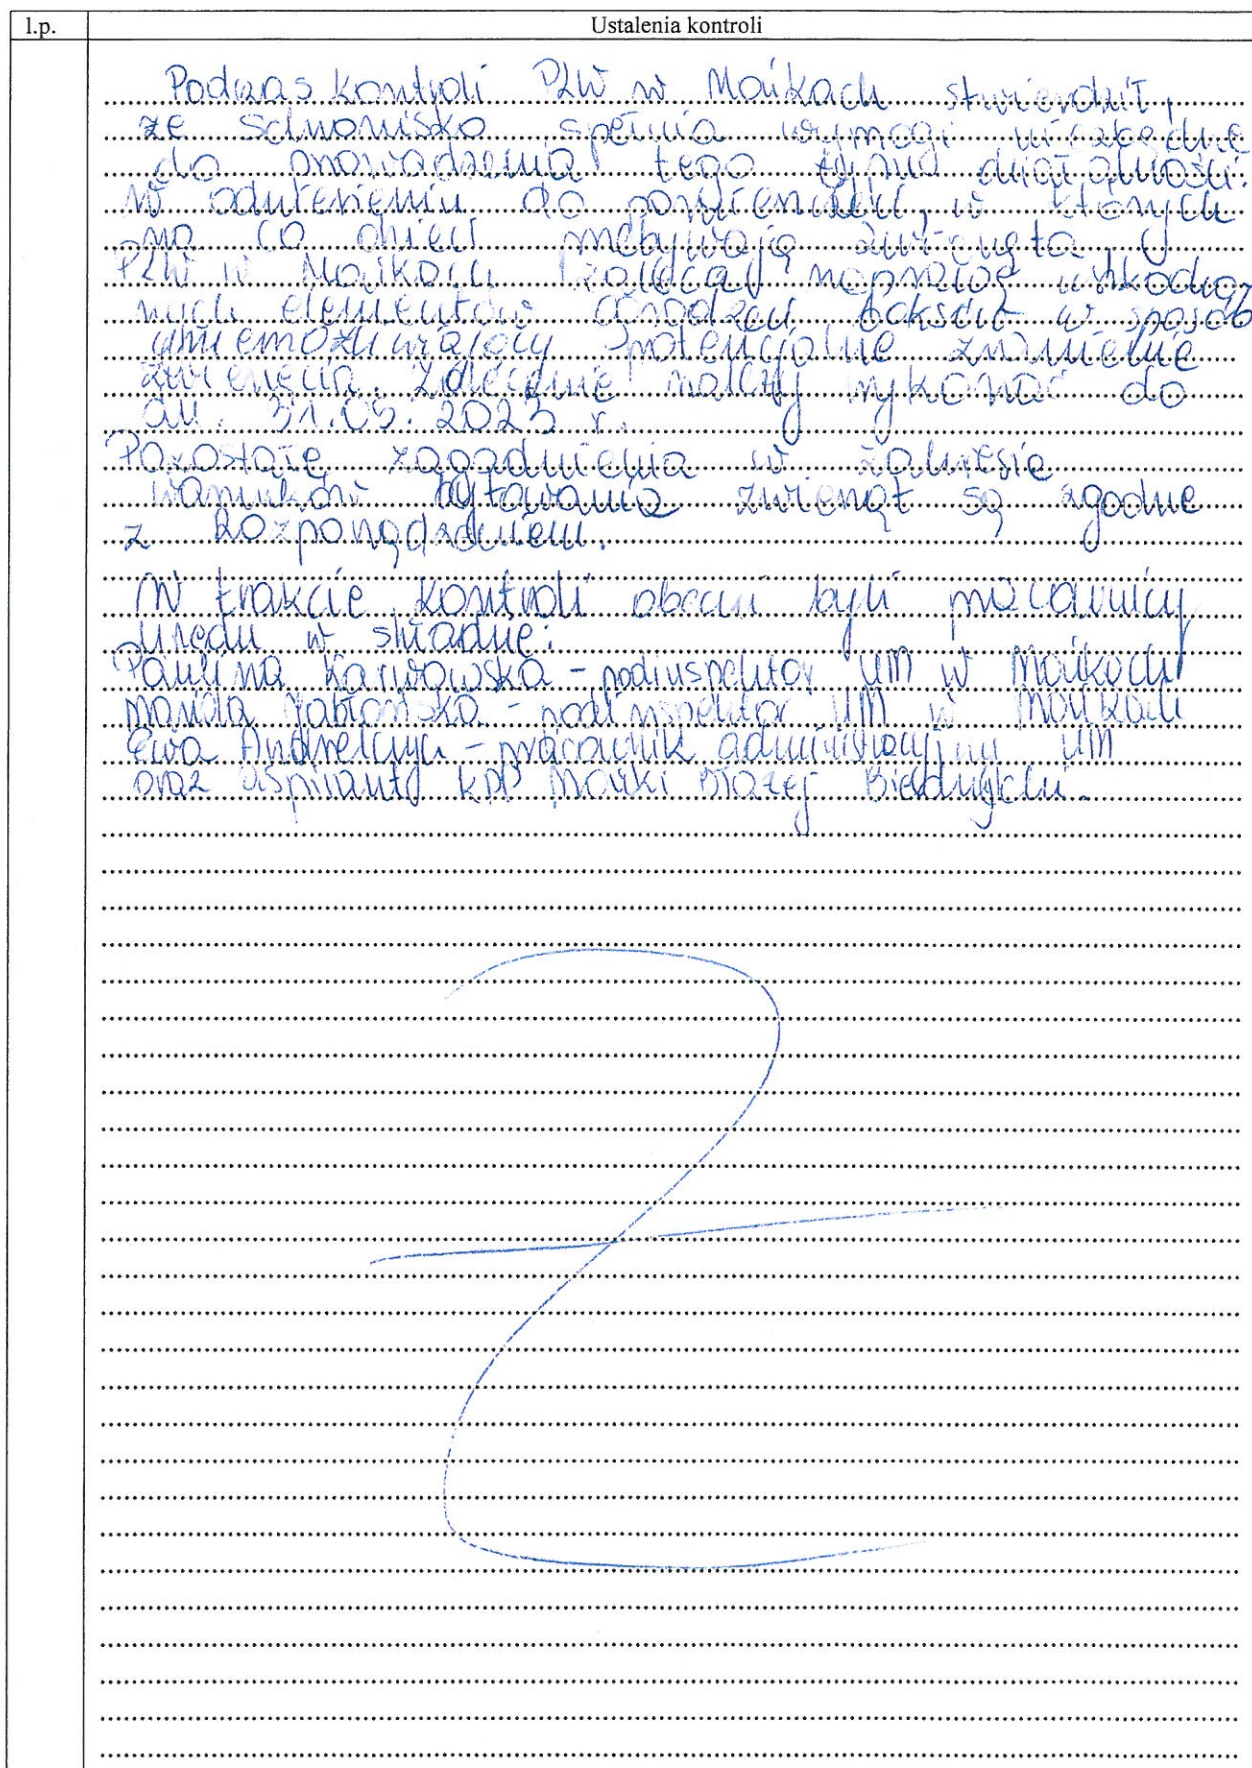 l.p. Ustalenia kontroli
Podczas kontroli PLW w Mońkach stwierdził,
że schronisko spełnia wymogi niezbędne
do prowadzenia tego typu działalności.
W odniesieniu do pomieszczeń, w których
na co dzień przebywają zwierzęta,
PLW w Mońkach zalecał naprawę uszkodzo-
nych elementów ogrodzeń boksów w sposób
uniemożliwiający potencjalne zranienie
zwierzęcia. Zalecenie należy wykonać do
dn. 31.05.2023 r.
Pozostałe zagadnienia w zakresie
warunków bytowania zwierząt są zgodne
z Rozporządzeniem.
W trakcie kontroli obecni byli pracownicy
urzędu w składzie:
Paulina Karwowska - podinspektor UM w Mońkach
Magda Jabłońska - podinspektor UM w Mońkach
Ewa - pracownik administracyjny UM
oraz aspirant KPP Mońki Błażej